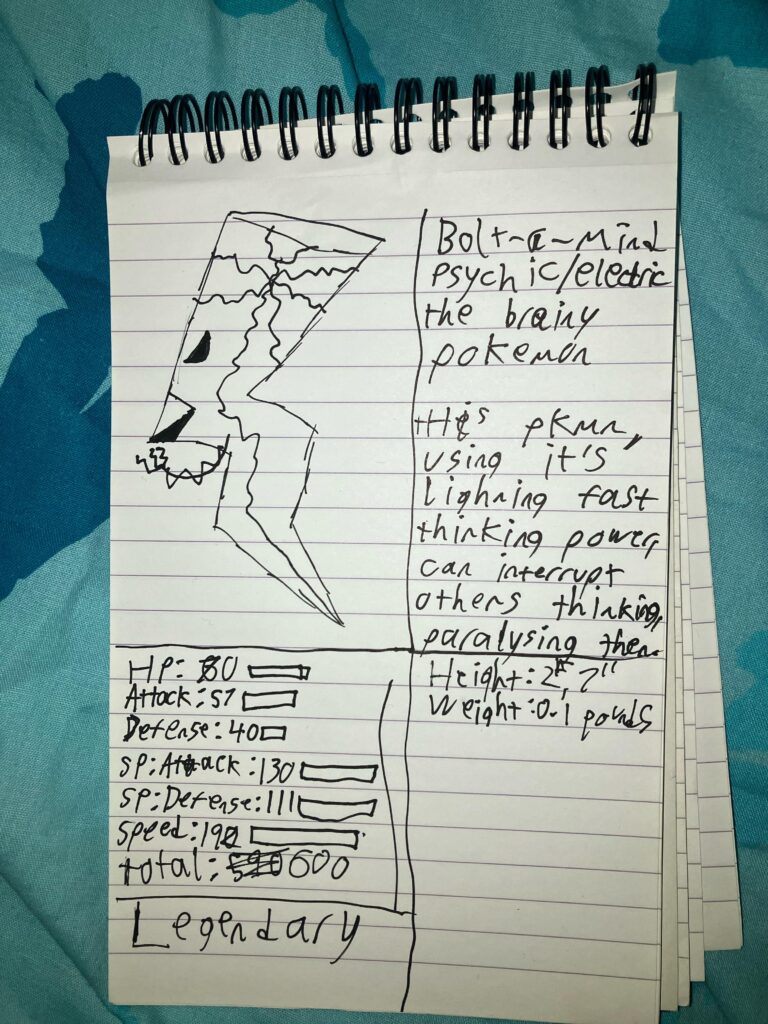 Bolt-a-Mind
psychic/electric
the brainy
pokemon
tHis pkmn,
using it's
lighning fast
thinking power,
can interrupt
others thinking,
paralysing them.
HP: 80
Attack: 57
Defense: 40
SP: Attack: 130
SP: Defense: 111
speed:
total: 600
Legendary
Height: 2", 7"
Weight: 0.1 pounds